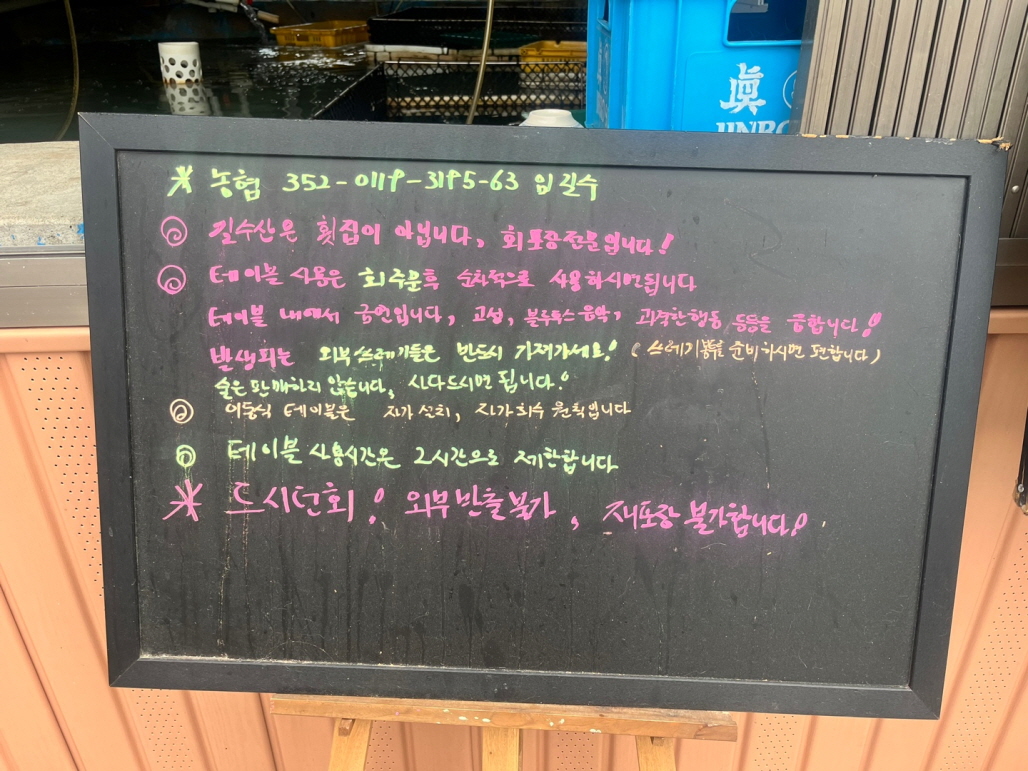 眞
JINRO
※ 농협 352-0119-3195-63 임길수
◎ 길수산은 횟집이 아닙니다, 회포장전문입니다!
◎ 테이블 사용은 회주문후 순차적으로 사용하시면됩니다
테이블 내에서 금연입니다, 고성, 블루투스음악, 과격한행동 등등을 금합니다!
발생되는 외부쓰레기들은 반드시 가져가세요! (쓰레기봉투 준비하시면 편합니다)
술은판매하지 않습니다, 사다드시면 됩니다!
◎ 이동식 테이블은 자가설치, 자가회수 원칙입니다
◎ 테이블 사용시간은 2시간으로 제한합니다
※ 드시던회! 외부반출불가, 재포장 불가합니다!